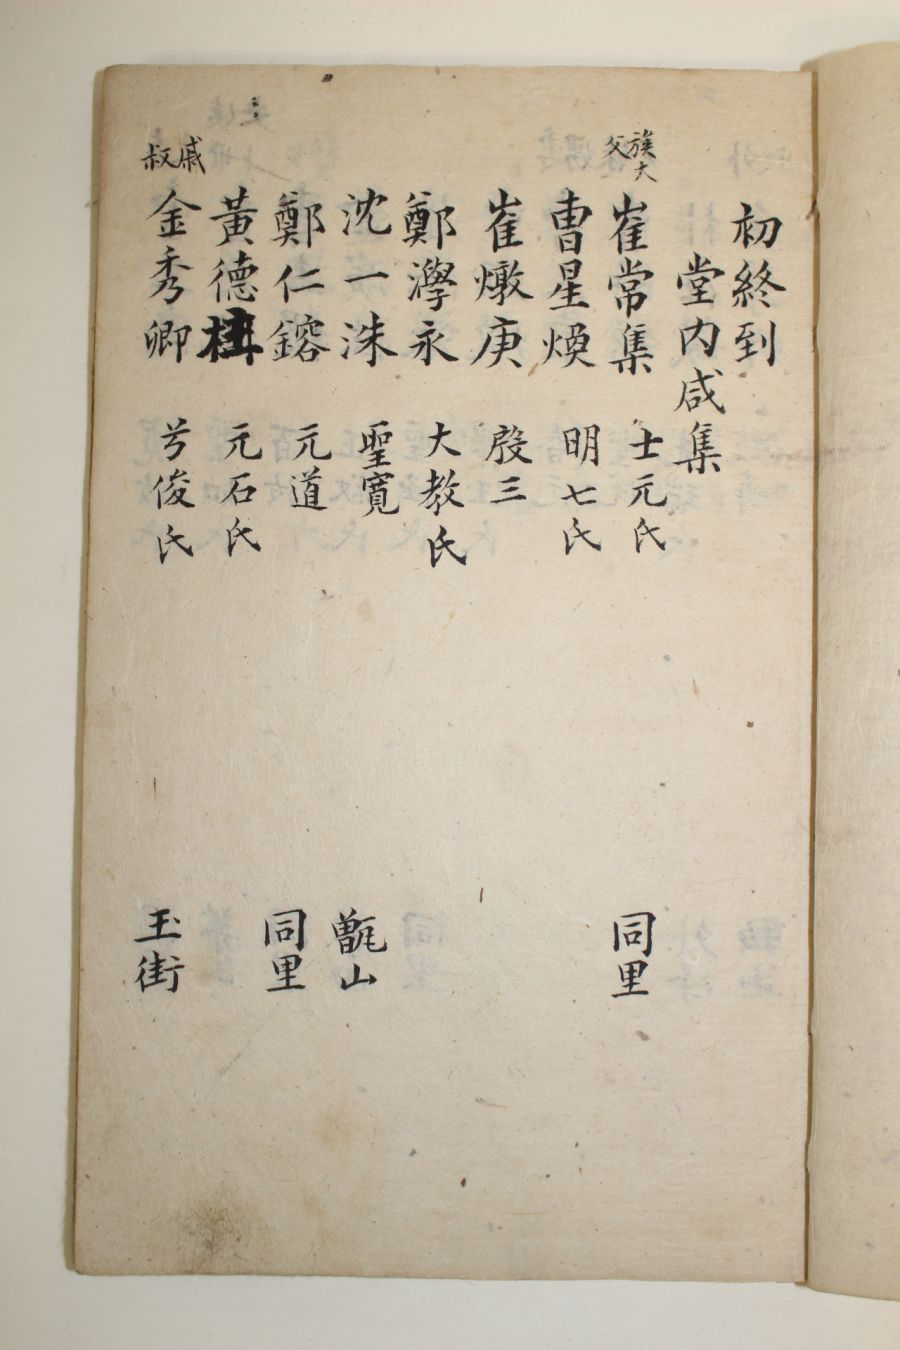 初終到
堂内咸集
族大父 崔常集 士元氏 同里
曺星煥 明七氏
崔燉庚 殷三
鄭澩永 大教氏
沈一洙 聖寬 甑山
鄭仁鎔 元道 同里
黃德 元石氏
戚叔 金秀卿 兮俊氏 玉街